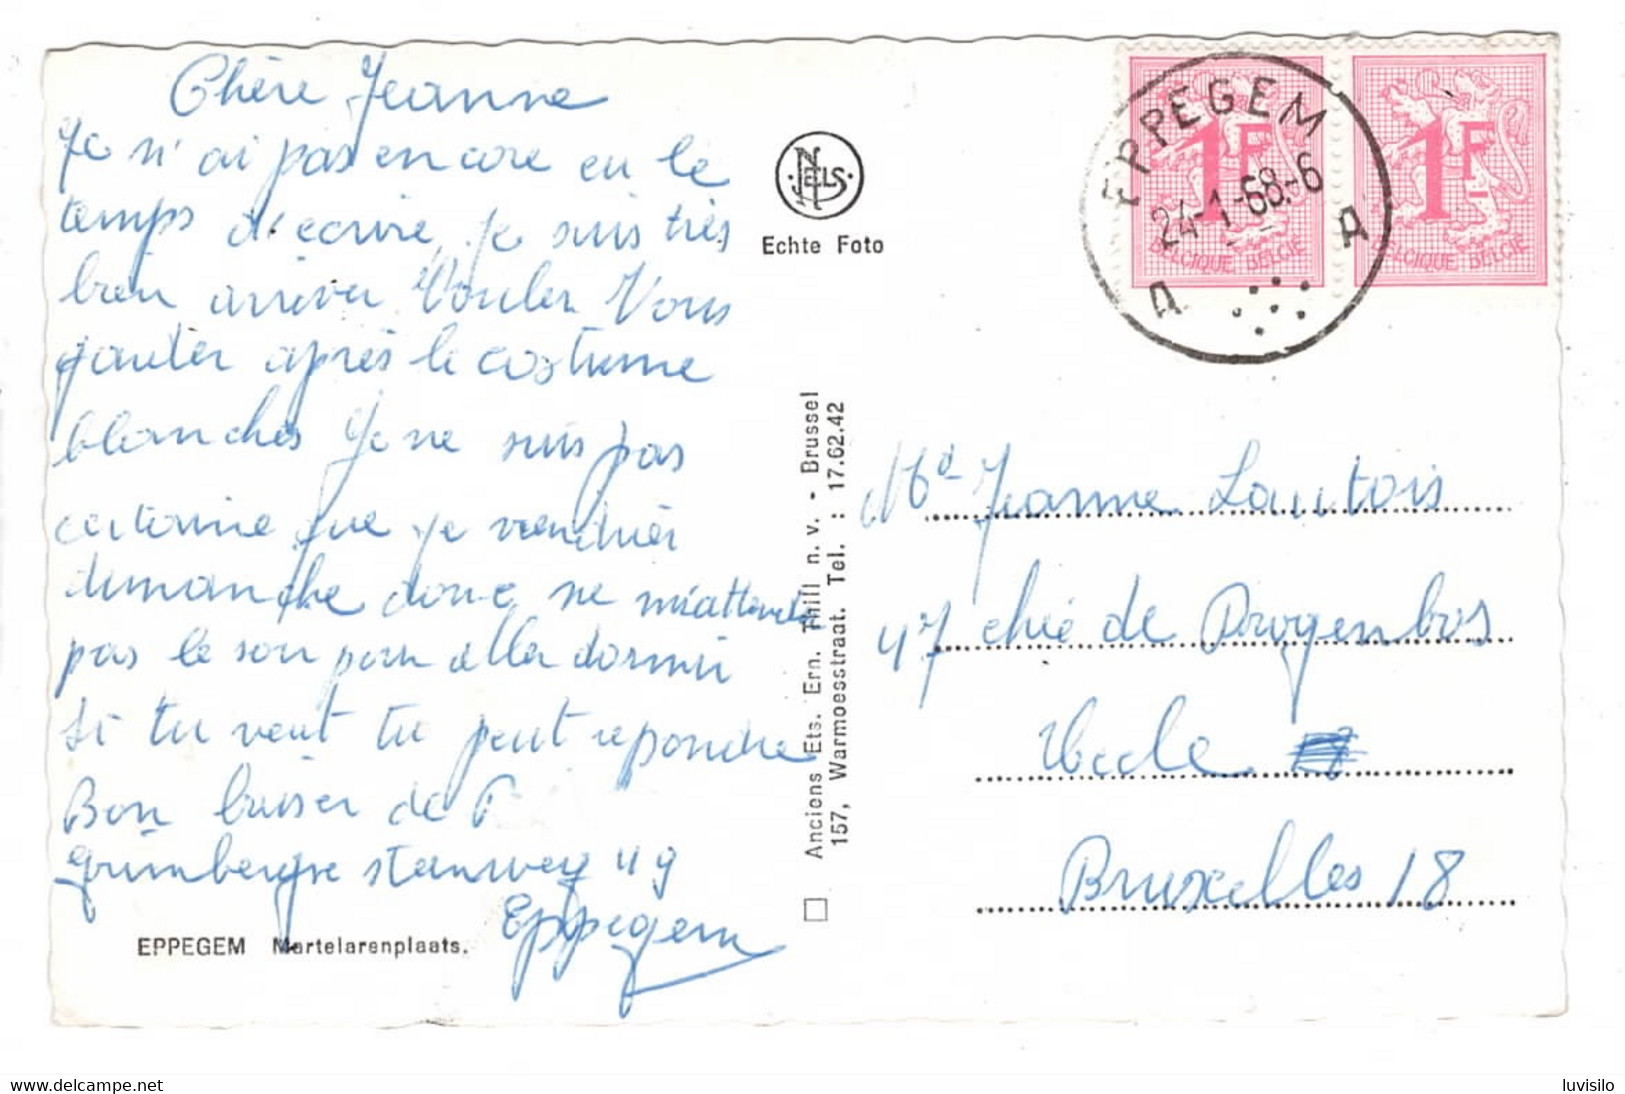 Chère Jeanne
Je n'ai pas encore eu le
temps d'écrire, je suis très
bien arriver Vouler Vous
gauter après le costume
blanches Je ne suis pas
certaine que je viendrier
dimanche donc ne m'attender
pas le soir pour aller dormir
Si tu veut tu peut repondre
Bon baiser de P
Grimbergse steenweg 49
Eppegem
EPPEGEM Martelarenplaats.
NELS
Echte Foto
Anciens Ets. Ern. Thill n. v. - Brussel
157, Warmoesstraat. Tel. : 17.62.42
EPPEGEM
24-1-68.-6
A A
1F
BELGIQUE BELGIE
1F
BELGIQUE BELGIE
Md Jeanne Lautois
47 chée de Drogenbos
Uccle
Bruxelles 18
www.delcampe.net
luvisilo